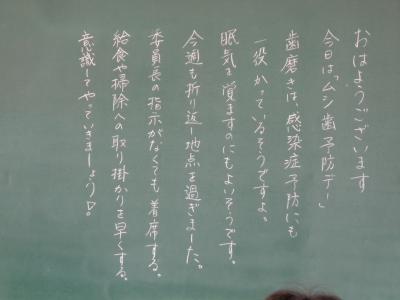 おはようございます
今日は「ムシ歯予防デー」
歯磨きは、感染症予防にも
一役かっているそうですよ。
眠気を覚ますのにもよいそうです。
今週も折り返し地点を過ぎました。
委員長の指示がなくても着席する。
給食や掃除への取り掛かりを早くする。
意識してやっていきましょう!。